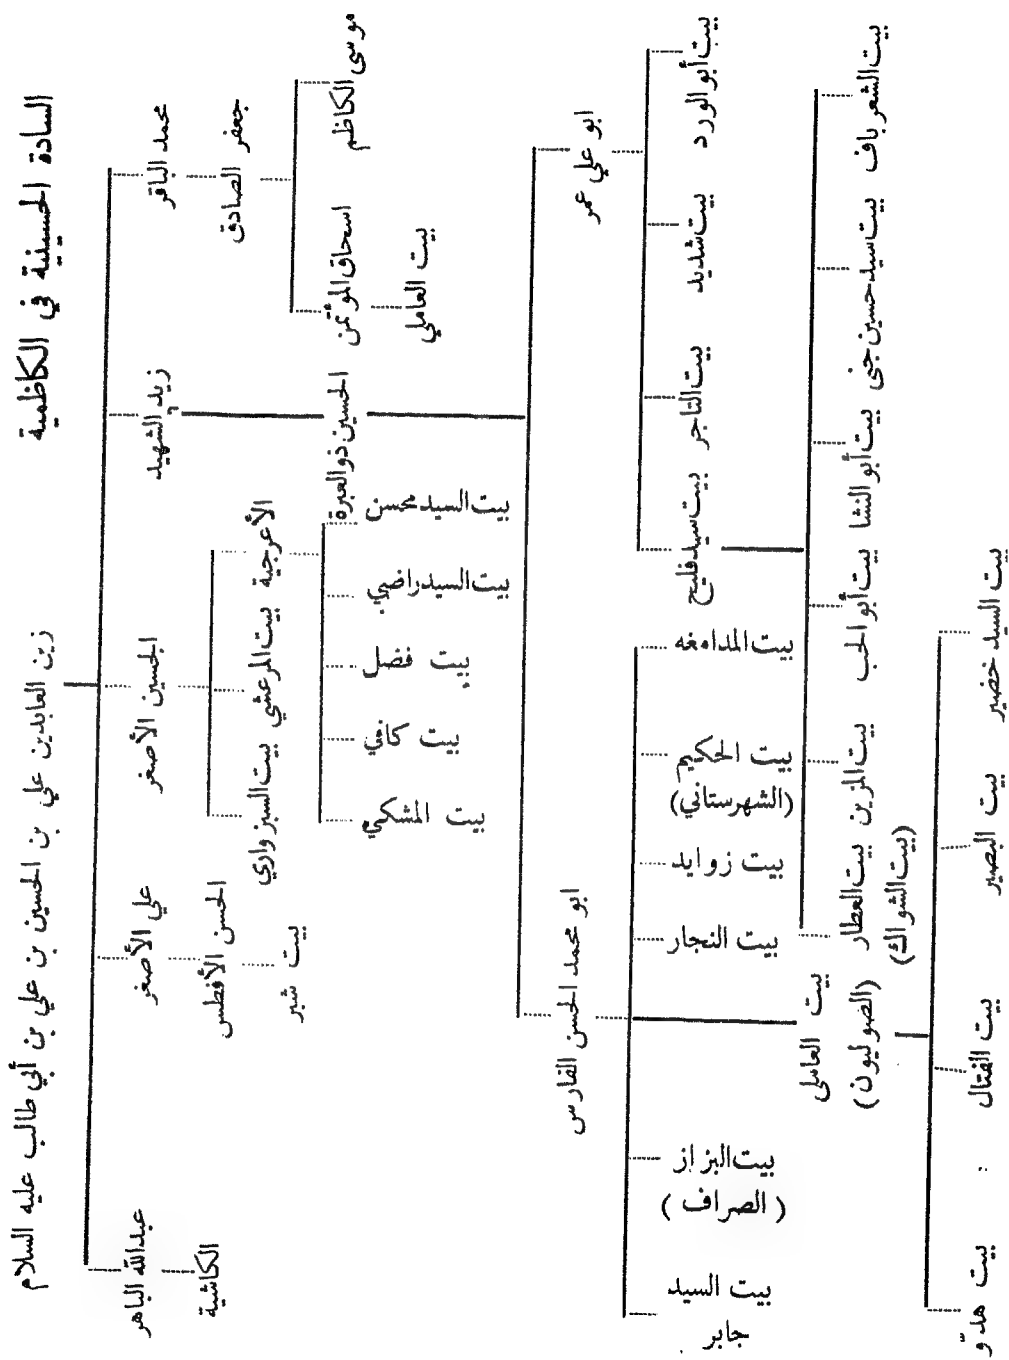 السادة الحسينية في الكاظمية
زين العابدين علي بن الحسين بن علي بن أبي طالب عليه السلام
محمد الباقر
زيد الشهيد
الحسين الأصغر
علي الأصغر
عبدالله الباهر
جعفر الصادق
الحسن الأفطس
الكاشية
موسى الكاظم
اسحاق المؤتمن
بيت العاملي
الحسين ذو العبرة
الأعرجية
بيت المرعشي
بيت السبزواري
بيت شبر
بيت السيد محسن
بيت السيد راضي
بيت فضل
بيت كافي
بيت المشكي
ابو علي عمر
ابو محمد الحسن الفارس
بيت أبو الورد
بيت شديد
بيت التاجر
بيت سيد فليح
بيت المدامغه
بيت الحكيم
(الشهرستاني)
بيت زوايد
بيت النجار
بيت العاملي
(الضوليون)
بيت البزاز
( الصراف )
بيت السيد
جابر
بيت الشعرباف
بيت سيد حسين جنى
بيت أبو النشا
بيت أبو الحب
بيت المزين
بيت العطار
(بيت الشواك)
بيت السيد خضير
بيت البصير
بيت الفتال
بيت هدّو